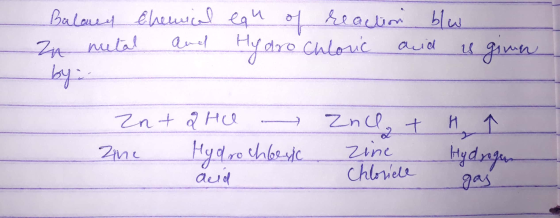 Balanced Chemical eqn of reaction b/w
Zn metal and Hydrochloric acid is given
by:-
Zn + 2HCl ⟶ ZnCl₂ + H₂ ↑
Zinc Hydrochloric Zinc Hydrogen
acid Chloride gas